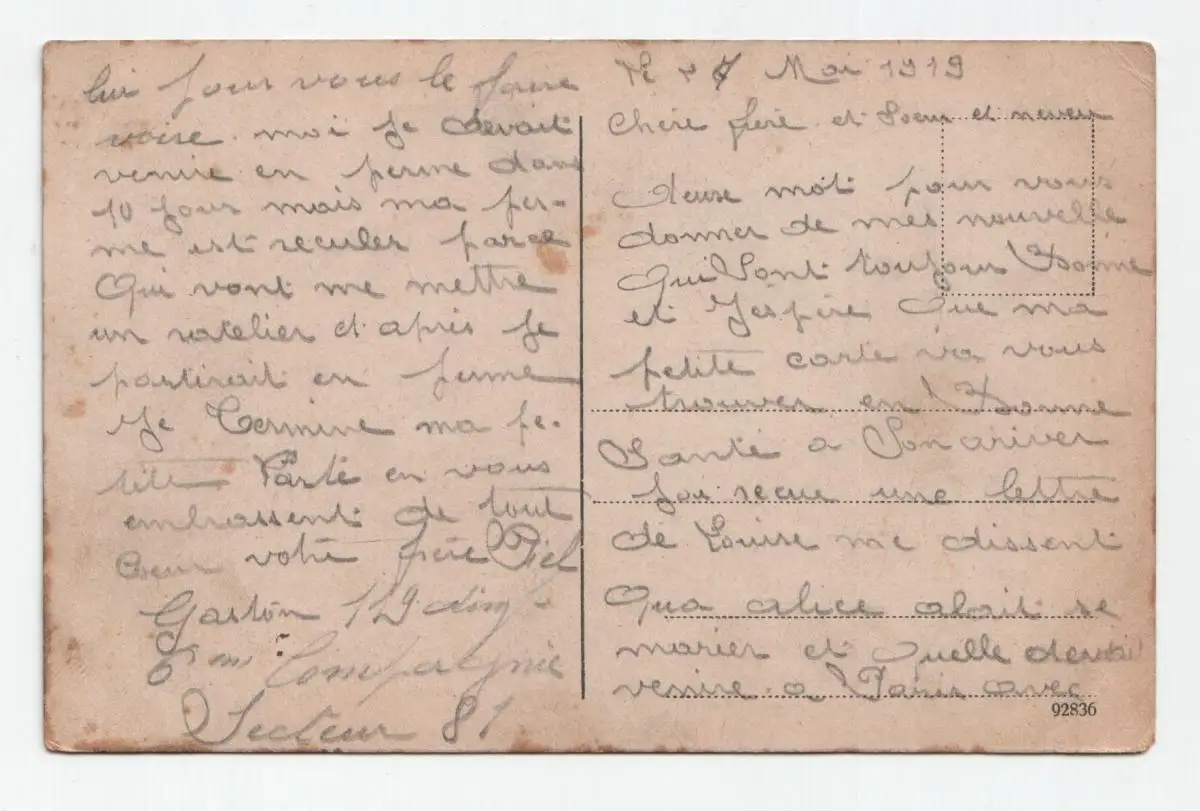 Mai 1919
Chere frère et Soeur et neveu
deuse mot pour vous
donner de mes nouvelle
Qui Sont toujour Bonne
et J'espère Que ma
petite carte va vous
trouver en Bonne
Santé a Son ariver
Jai recue une lettre
de Louise me dissent
Qua alice alait se
marier et Quelle devai
venire a Paris avec
92836
lui pour vous le faire
voire moi je devait
venire en perme dans
10 jour mais ma per-
me est reculer parce
Qui vont me mettre
un ratelier et après je
partirait en perme
Je termine ma pe-
tite Carte en vous
embrassent de tout
Coeur votre frère
Gaston 129
6me Compagnie
Secteur 81